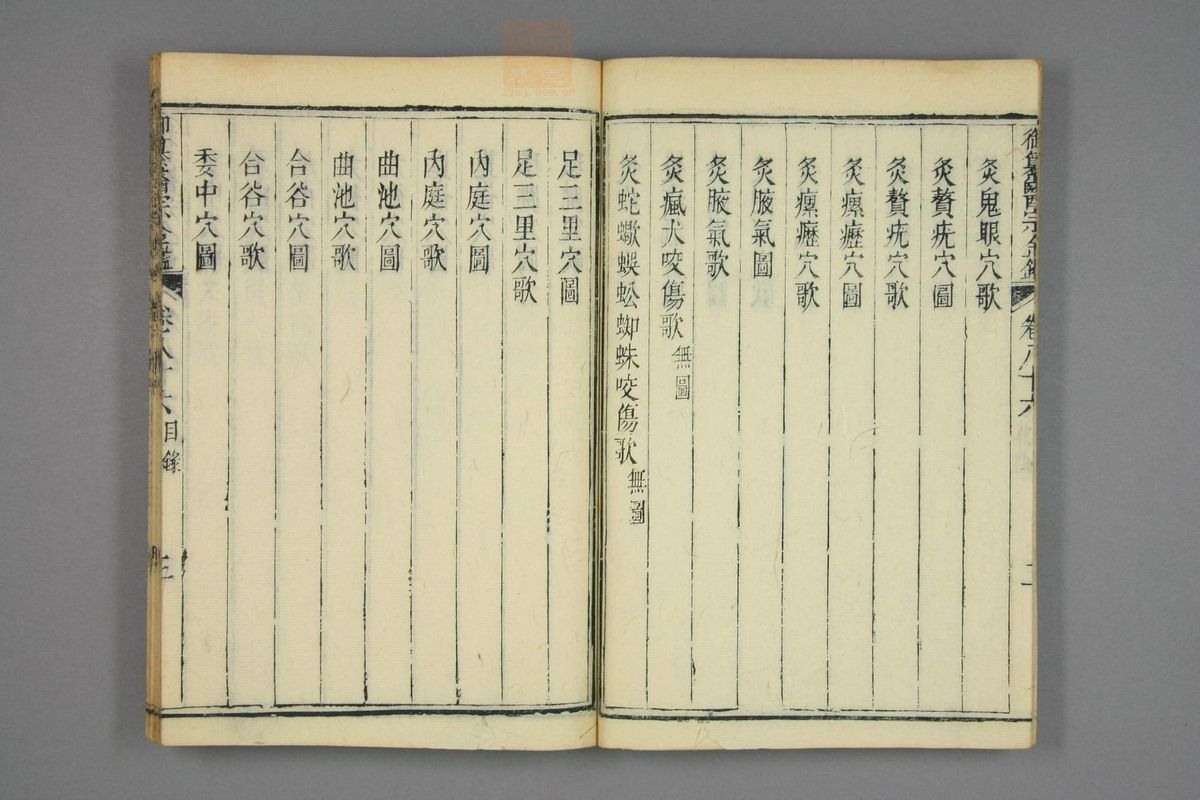 御纂醫宗金鑑 卷八十六 二
灸鬼眼穴歌
灸贅疣穴圖
灸贅疣穴歌
灸瘰癧穴圖
灸瘰癧穴歌
灸腋氣圖
灸腋氣歌
灸瘋犬咬傷歌 無圖
灸蛇蠍蜈蚣蜘蛛咬傷歌 無圖
足三里穴圖
足三里穴歌
內庭穴圖
內庭穴歌
曲池穴圖
曲池穴歌
合谷穴圖
合谷穴歌
委中穴圖
御纂醫宗金鑑 卷八十六 目錄 三